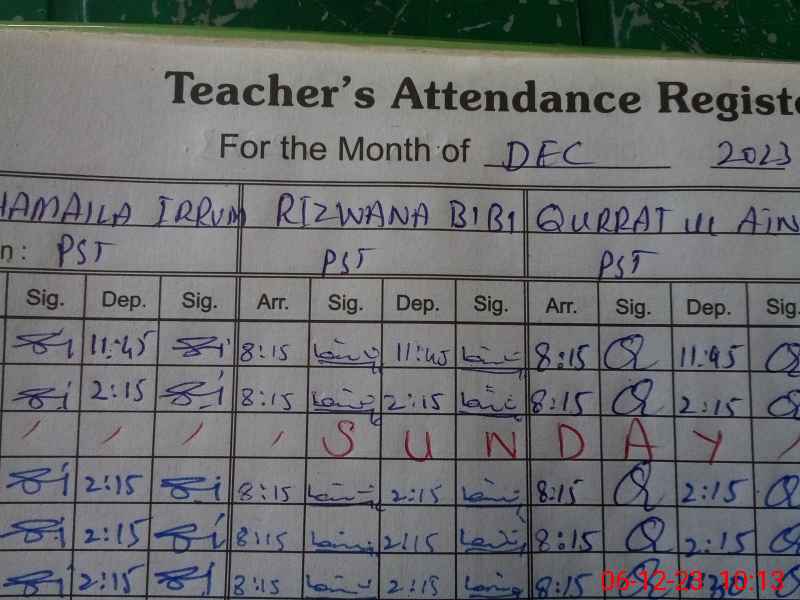 Teacher's Attendance Registe
For the Month of DEC 2023
HAMAILA IRRUM RIZWANA BIBI QURRAT UL AIN
n: PST PST PST
Sig. Dep. Sig. Arr. Sig. Dep. Sig. Arr. Sig. Dep. Sig
11:45 8:15 11:45 8:15 11:45
2:15 8:15 2:15 8:15 2:15
SUNDAY
2:15 8:15 2:15 8:15 2:15
2:15 8:15 2:15 8:15 2:15
2:15 8:15 2:15 8:15
06-12-23 10:13